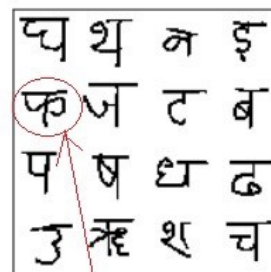 घ थ न ड़
फ ज ट ब
प ष ध ढ
उ ऋ श च